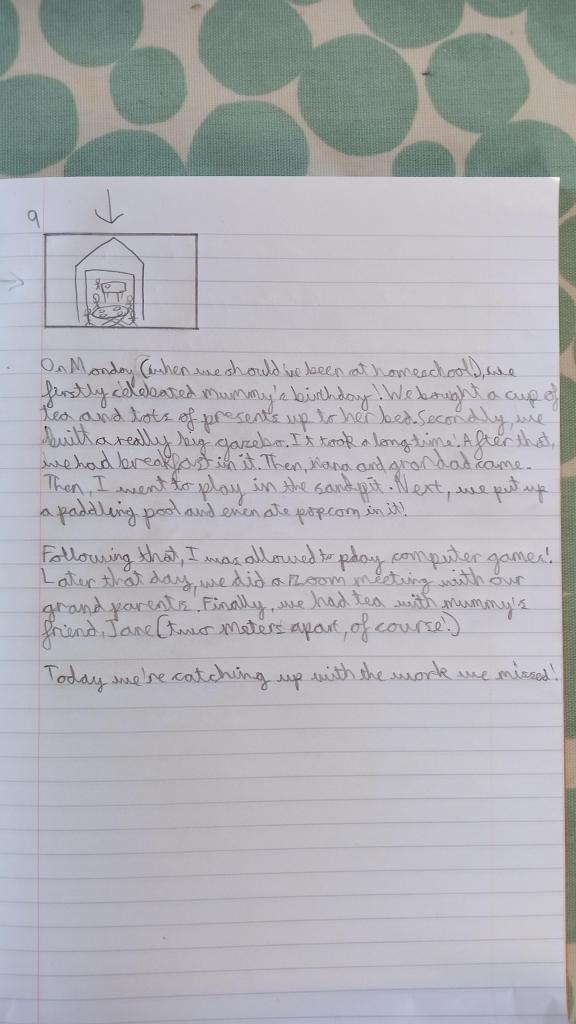 9
On Monday (when we should've been at homeschool), we
firstly celebrated mummy's birthday! We bought a cup of
tea and lots of presents up to her bed. Secondly, we
built a really big gazebo. It took a long time! After that,
we had breakfast in it. Then, nana and grandad came.
Then, I went to play in the sandpit. Next, we put up
a paddling pool and even ate popcorn in it!
Following that, I was allowed to play computer games!
Later that day, we did a zoom meeting with our
grand parents! Finally, we had tea with mummy's
friend, Jane (two meters apart, of course!)
Today we're catching up with the work we missed!